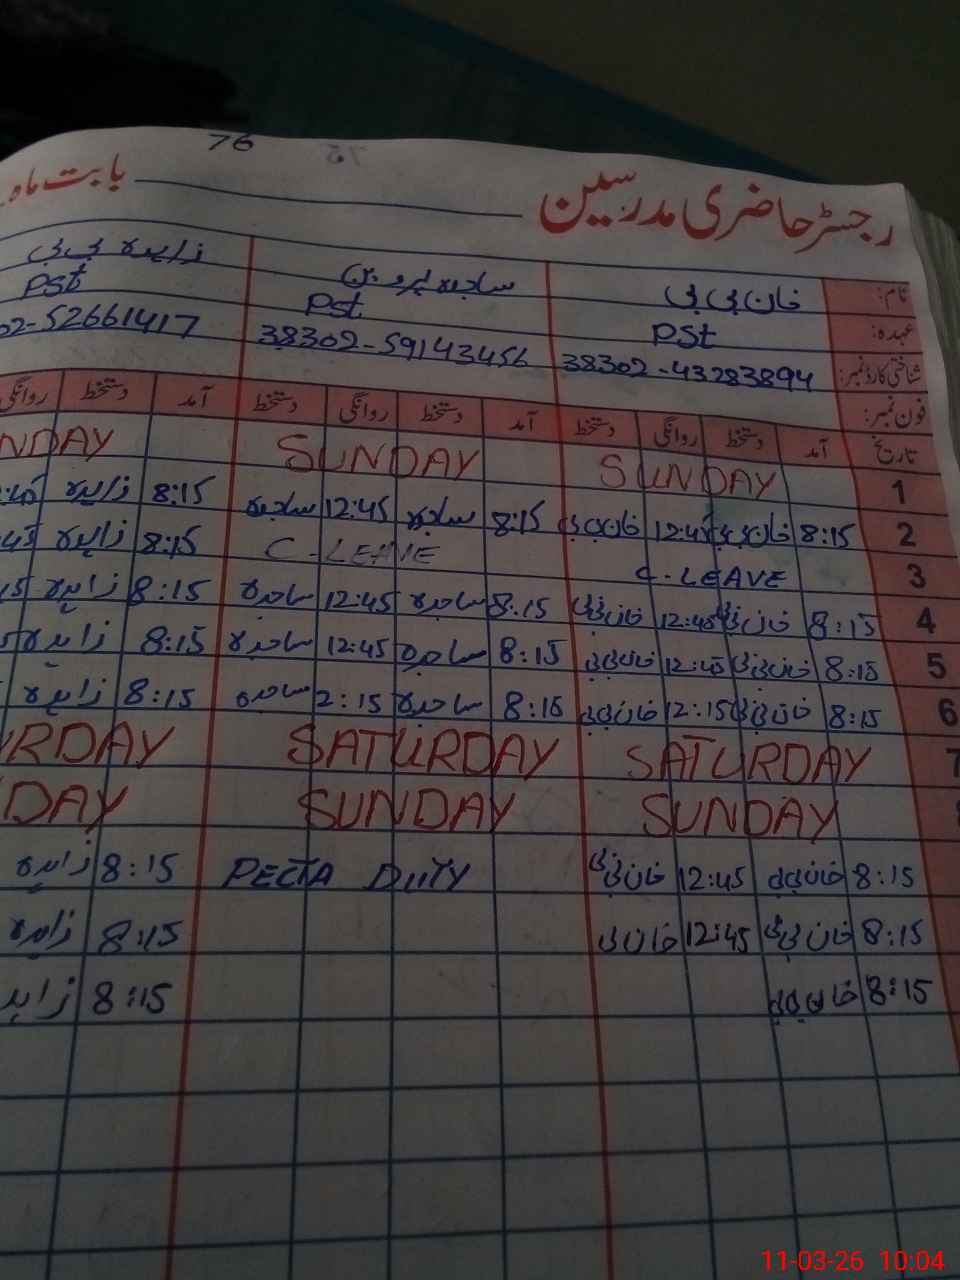 76
رجسٹر حاضری مدرسین بابت ماہ
نام: خان بی بی ساجدہ پروین زاہدہ بی بی
عہدہ: PST PST PST
شناختی کارڈ نمبر: 38302-43283894 38302-59143456 02-52661417
فون نمبر:
تاریخ آمد دستخط روانگی دستخط آمد دستخط روانگی دستخط آمد دستخط روانگی
1 SUNDAY SUNDAY NDAY
2 8:15 خان بی بی 12:45 خان بی بی 8:15 ساجدہ 12:45 ساجدہ 8:15 زاہدہ
3 C-LEAVE C-LEAVE 8:15 زاہدہ
4 8:15 خان بی بی 12:45 خان بی بی 8:15 ساجدہ 12:45 ساجدہ 8:15 زاہدہ
5 8:15 خان بی بی 12:45 خان بی بی 8:15 ساجدہ 12:45 ساجدہ 8:15 زاہدہ
6 8:15 خان بی بی 12:15 خان بی بی 8:15 ساجدہ 2:15 ساجدہ 8:15 زاہدہ
7 SATURDAY SATURDAY RDAY
SUNDAY SUNDAY DAY
8:15 خان بی بی 12:45 خان بی بی PECTA DUTY 8:15 زاہدہ
8:15 خان بی بی 12:45 خان بی 8:15 زاہدہ
8:15 خان بی بی 8:15 زاہد
11-03-26 10:04